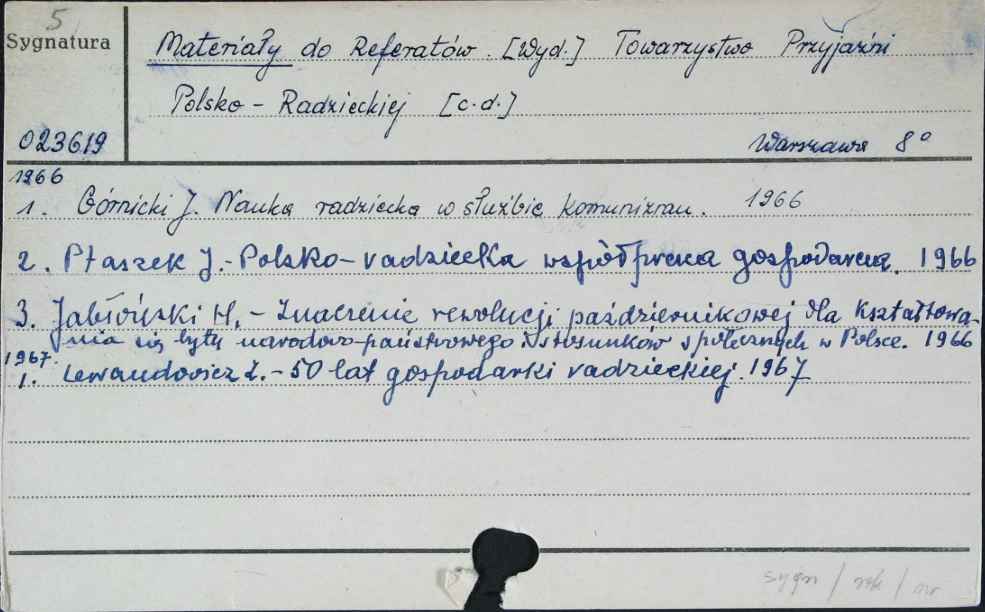 5
Sygnatura
Materiały do Referatów. [Wyd.] Towarzystwo Przyjaźni
Polsko - Radzieckiej [c.d.]
023619
Warszawa 8°
1966
1. Górnicki J. Nauka radziecka w służbie komunizmu. 1966
2. Ptaszek J. - Polsko - radziecka współpraca gospodarcza. 1966
3. Jabłoński H. - Znaczenie rewolucji październikowej dla kształtowa-
nia się bytu narodowo-państwowego i stosunków społecznych w Polsce. 1966
1967.
1. Lewandowicz Z. - 50 lat gospodarki radzieckiej. 1967
sygn / rok / nr